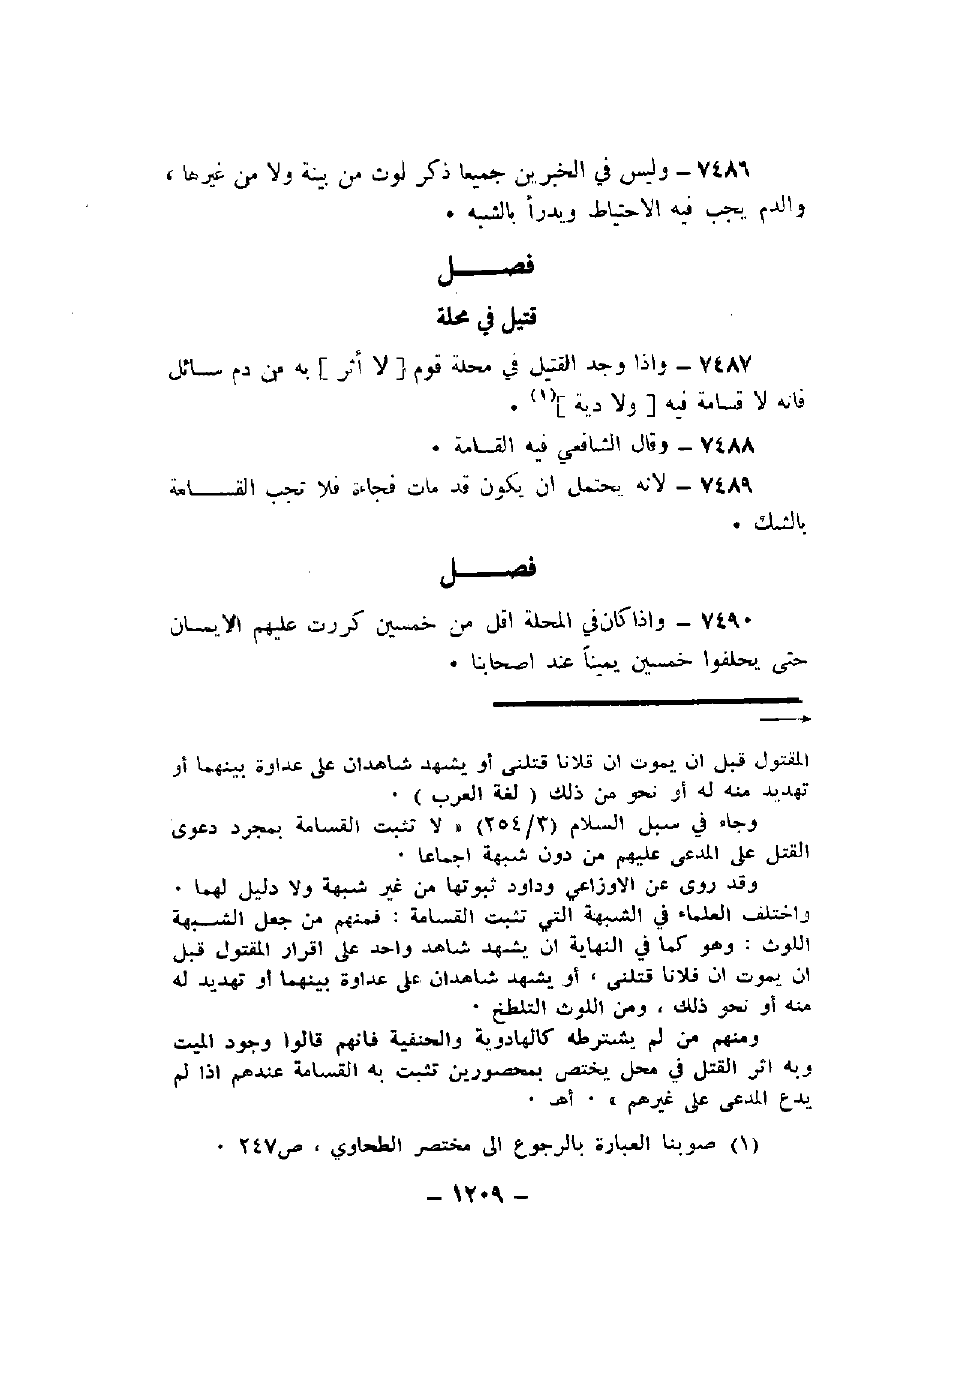 ٧٤٨٦ – وليس في الخبرين جميعا ذكر لوث من بينة ولا من غيرها ،
والدم يجب فيه الاحتياط ويدرأ بالشبه .
فصــــل
قتيل في محلة
٧٤٨٧ – واذا وجد القتيل في محلة قوم [ لا أثر ] به من دم ســائل
فانه لا قسامة فيه [ ولا دية ](١) .
٧٤٨٨ – وقال الشافعي فيه القســامة .
٧٤٨٩ – لانه يحتمل ان يكون قد مات فجاءة فلا تجب القســــامة
بالشك .
فصــــل
٧٤٩٠ – واذا كان في المحلة اقل من خمسين كررت عليهم الايمــان
حتى يحلفوا خمسين يميناً عند اصحابنا .
المقتول قبل ان يموت ان قلانا قتلنى أو يشهد شاهدان على عداوة بينهما أو
تهديد منه له أو نحو من ذلك ( لغة العرب ) .
وجاء في سبل السلام (٢٥٤/٣) « لا تثبت القسامة بمجرد دعوى
القتل على المدعى عليهم من دون شبهة اجماعا .
وقد روى عن الاوزاعي وداود ثبوتها من غير شبهة ولا دليل لهما .
واختلف العلماء في الشبهة التي تثبت القسامة : فمنهم من جعل الشـــبهة
اللوث : وهو كما في النهاية ان يشهد شاهد واحد على اقرار المقتول قبل
ان يموت ان فلانا قتلنى ، أو يشهد شاهدان على عداوة بينهما أو تهديد له
منه أو نحو ذلك ، ومن اللوث التلطخ .
ومنهم من لم يشترطه كالهادوية والحنفية فانهم قالوا وجود الميت
وبه اثر القتل في محل يختص بمحصورين تثبت به القسامة عندهم اذا لم
يدع المدعى على غيرهم » . أهـ .
(١) صوبنا العبارة بالرجوع الى مختصر الطحاوي ، ص٢٤٧ .
– ١٢٠٩ –